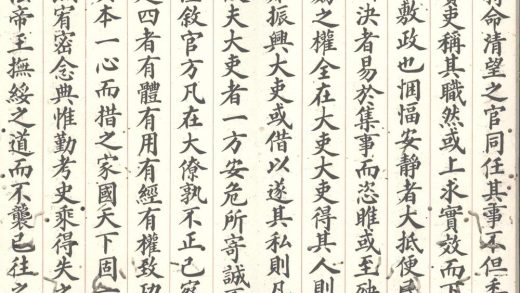 命清望之官同任其事不但
吏稱其職然或上求實效而下
敷政也悃愊安靜者大抵便民
決者易於集事而恣睢或至
之權全在大吏大吏得其人則
振興大吏或借以遂其私則凡
夫大吏者一方安危所寄誠
敘官方凡在大僚孰不正己
四者有體有用有經有權致功
本一心而措之家國天下固
宥密念典惟勤考史乘得失之
帝王撫綏之道而不襲已往之